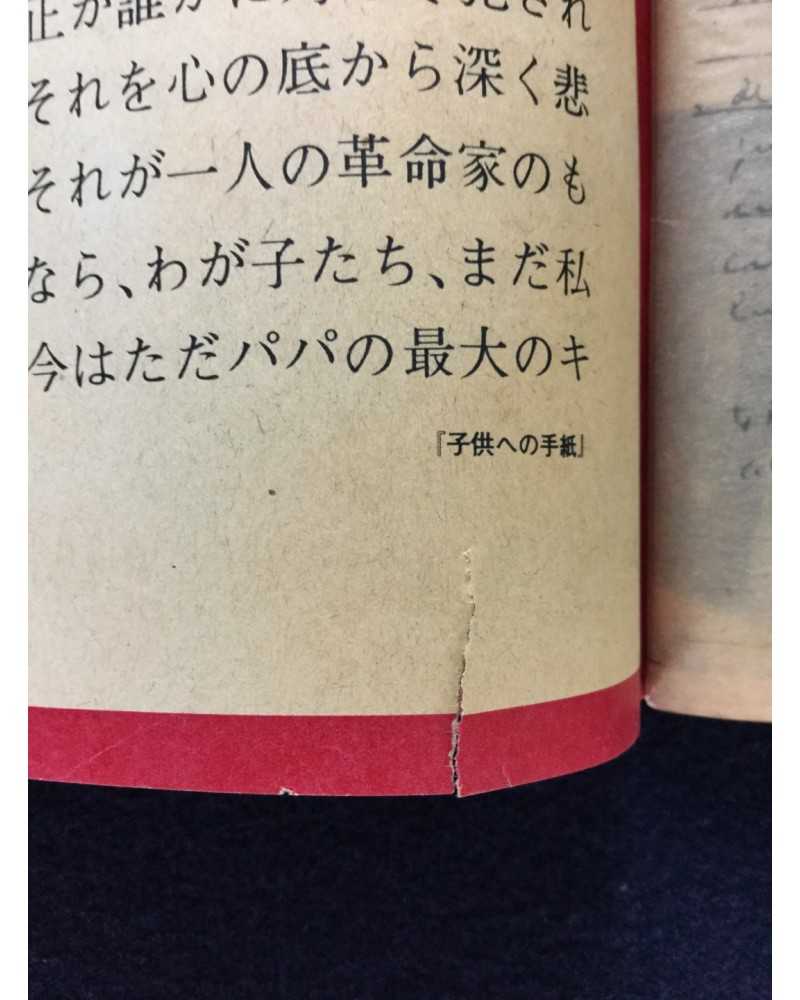 正が誰かに対して犯され
それを心の底から深く悲
それが一人の革命家のも
なら、わが子たち、まだ私
今はただパパの最大のキ
『子供への手紙』